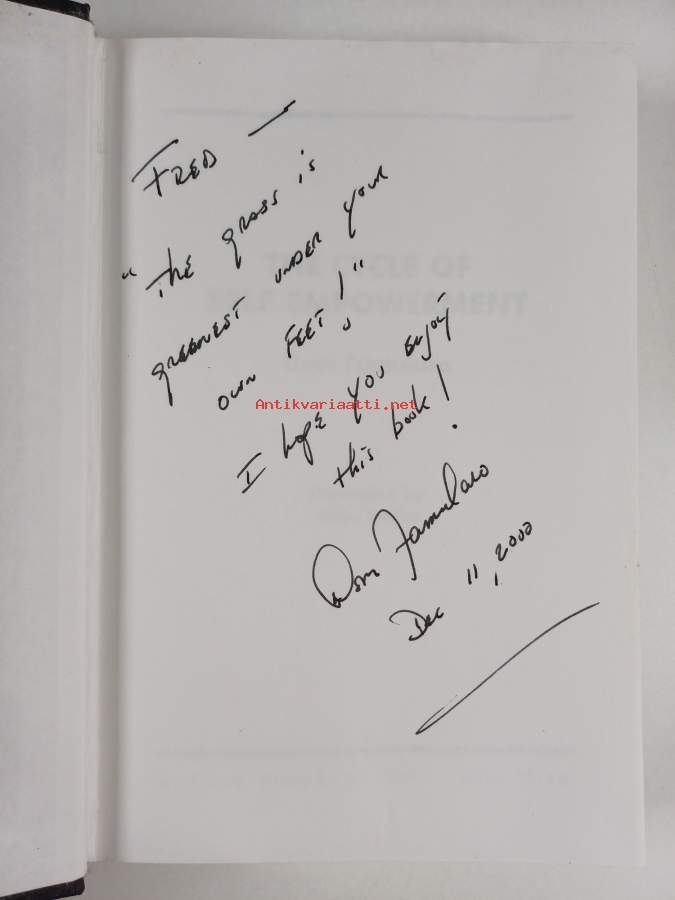 FRED —
"The grass is
greenest under your
own feet!"
I hope you enjoy
this book!
Dom Famularo
Dec 11, 2000
THE CYCLE OF
SELF EMPOWERMENT
Dom Famularo
Antikvariaatti.net